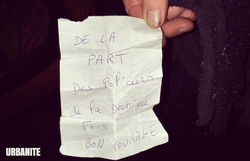 DE LA
PART
Des Policiers
de la Dernière
Fois
BON COURAGE
URBANITE